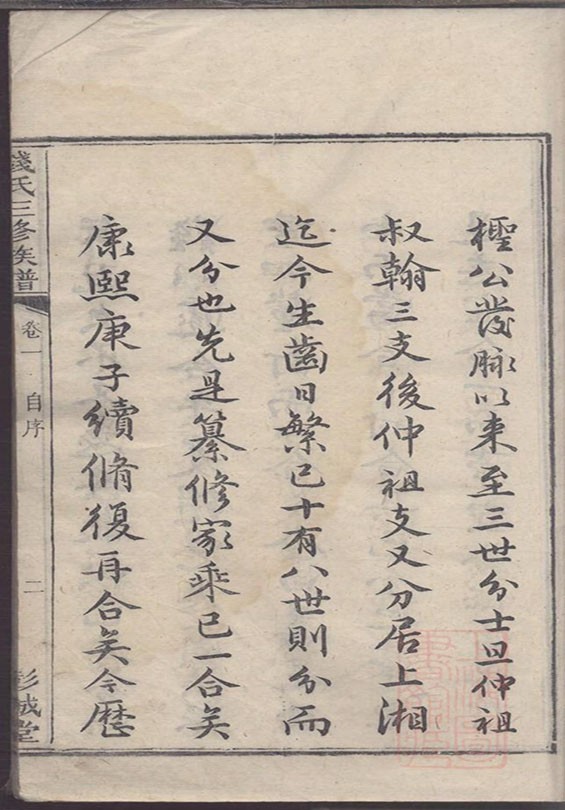 檉公發脉以来至三世分士旦仲祖
叔翰三支後仲祖支又分居上湘
迄今生齒日繁已十有八世則分而
又分也先是纂修家乘已一合矣
康熙庚子續脩復再合矣今歷
錢氏三修族譜
卷一 自序
二
彭城堂